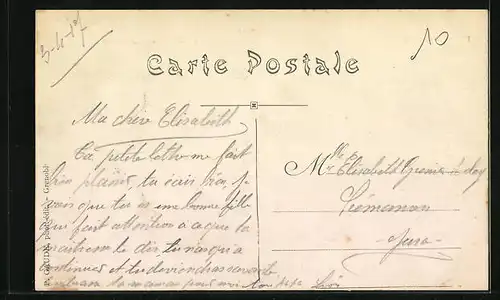 3-4-17
10
Carte Postale
Ma chère Elisabeth
Ta petite lettre me fait
bien plaisir, tu écris bien, je
vois que tu es une bonne fille
que fait attention à ce que ta
maîtresse te dit tu n'as qu'à
continuer et tu deviendras savante
maman pour moi ton
Mlle Elisabeth Grenier
Prémanon
Jura
phot. édit. Grenoble